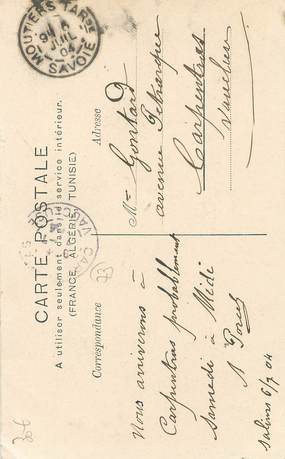 CARTE POSTALE
A utiliser seulement dans le service intérieur.
(FRANCE, ALGÉRIE, TUNISIE)
Correspondance
Adresse
Nous arriverons à
Carpentras probablement
samedi à Midi
Salins 6/7 04
Gontard
avenue Pétrarque
Carpentras
Vaucluse
MOUTIERS TAR.se
JUIL.
04
SAVOIE